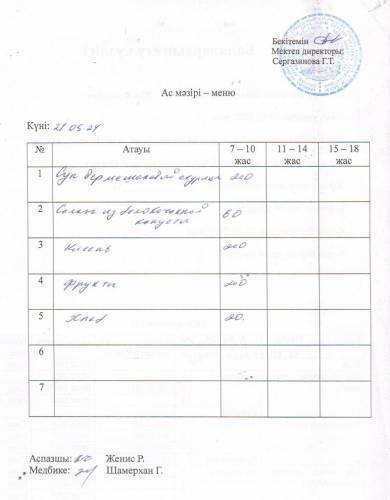 Бекітемін
Мектеп директоры:
Сергазинова Г.Т.
Ас мәзірі – меню
Күні: 21 05 24
№ Атауы 7 – 10 жас 11 – 14 жас 15 – 18 жас
1 Суп вермешелевый с курицей 200
2 Салат из белокочанной капусты 60
3 Кисель 200
4 Фрукты 200
5 Хлеб 20.
6
7
Аспазшы: Женис Р.
Медбике: Шамерхан Г.